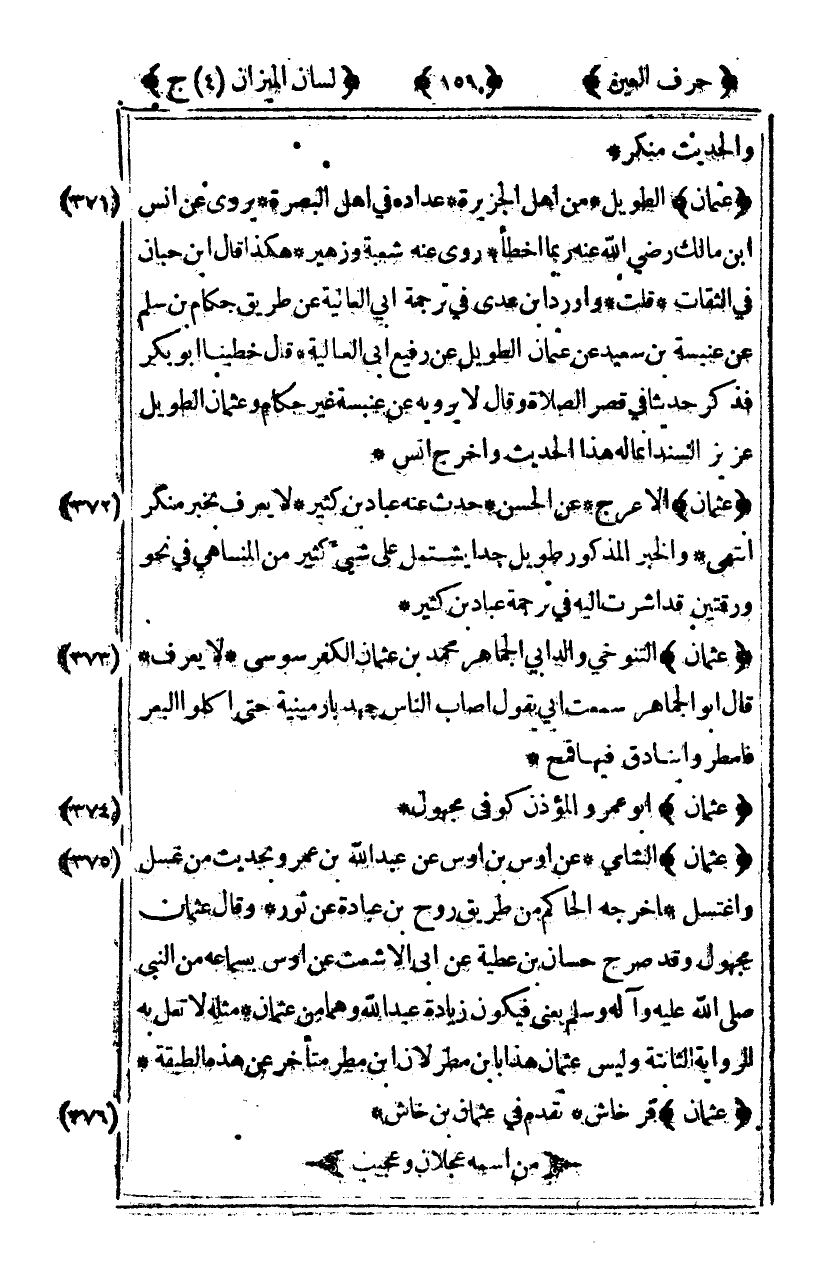 ﴿ حرف العين ﴾ ﴿ ١٥٩ ﴾ ﴿ لسان الميزان (٤) ج ﴾
والحديث منكر*
﴿عثمان﴾ الطويل*من اهل الجزيرة*عداده في اهل البصرة*يروى عن انس (٣٧١)
ابن مالك رضي الله عنه ربما اخطأ* روى عنه شعبة وزهير*هكذا قال ابن حبان
في الثقات *قلت*واورد ابن عدى في ترجمة ابي العالية عن طريق حكام بن سلم
عن عنبسة بن سعيد عن عثمان الطويل عن رفيع ابى العالية*قال خطبنا ابو بكر
فذكر حديثا في قصر الصلاة وقال لا يرويه عن عنبسة غير حكام وعثمان الطويل
عزيز السند انما له هذا الحديث واخرج انس *
﴿عثمان﴾ الاعرج*عن الحسن*حدث عنه عباد بن كثير*لا يعرف بخبر منكر (٣٧٢)
انتهى* والخبر المذكور طويل جدا يشتمل على شيئ كثير من المناهي في نحو
ورقتين قد اشرت اليه في ترجمة عباد بن كثير*
﴿ عثمان ﴾ التنوخي والد ابي الجماهر محمد بن عثمان الكفرسوسى *لا يعرف* (٣٧٣)
قال ابو الجماهر سمعت ابي يقول اصاب الناس جهد بارمينية حتى اكلوا البعر
فامطر وابنادق فيها قمح *
﴿ عثمان ﴾ ابو عمرو المؤذن كوفى مجهول* (٣٧٤)
﴿ عثمان ﴾ الشامي *عن اوس بن اوس عن عبدالله بن عمرو بحديث من غسل (٣٧٥)
واغتسل *اخرجه الحاكم من طريق روح بن عبادة عن ثور* وقال عثمان
مجهول وقد صرح حسان بن عطية عن ابى الاشعث عن اوس بسماعه من النبي
صلى الله عليه وآله وسلم يعنى فيكون زيادة عبدالله وهما من عثمان*مثله لا تعل به
الرواية الثابتة وليس عثمان هذا بابن مطر لان ابن مطر متأخر عن هذه الطبقة *
﴿ عثمان ﴾ قر خاش* تقدم في عثمان بن خاش* (٣٧٦)
﴿ من اسمه عجلان وعجيب ﴾